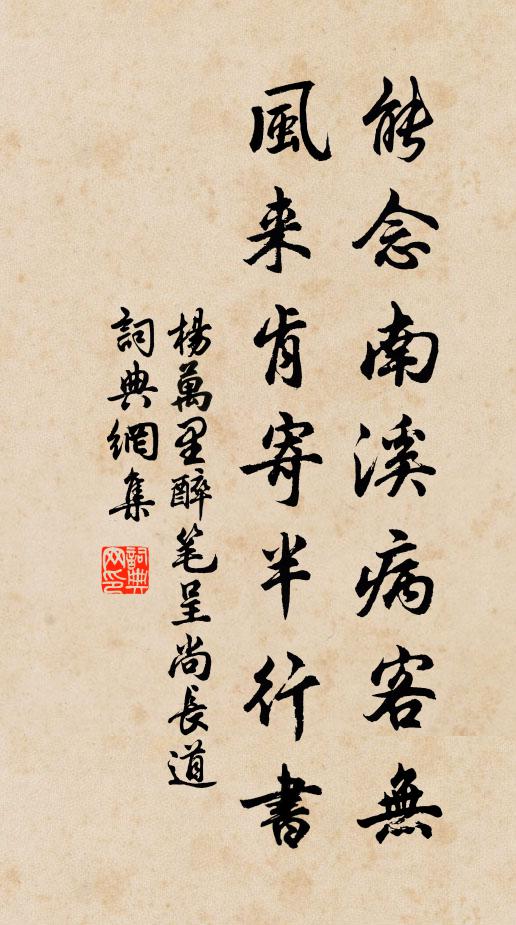 能念南溪病客無
風来肯寄半行書
楊萬里醉笔呈尚長道
詞典網集
詞典网印